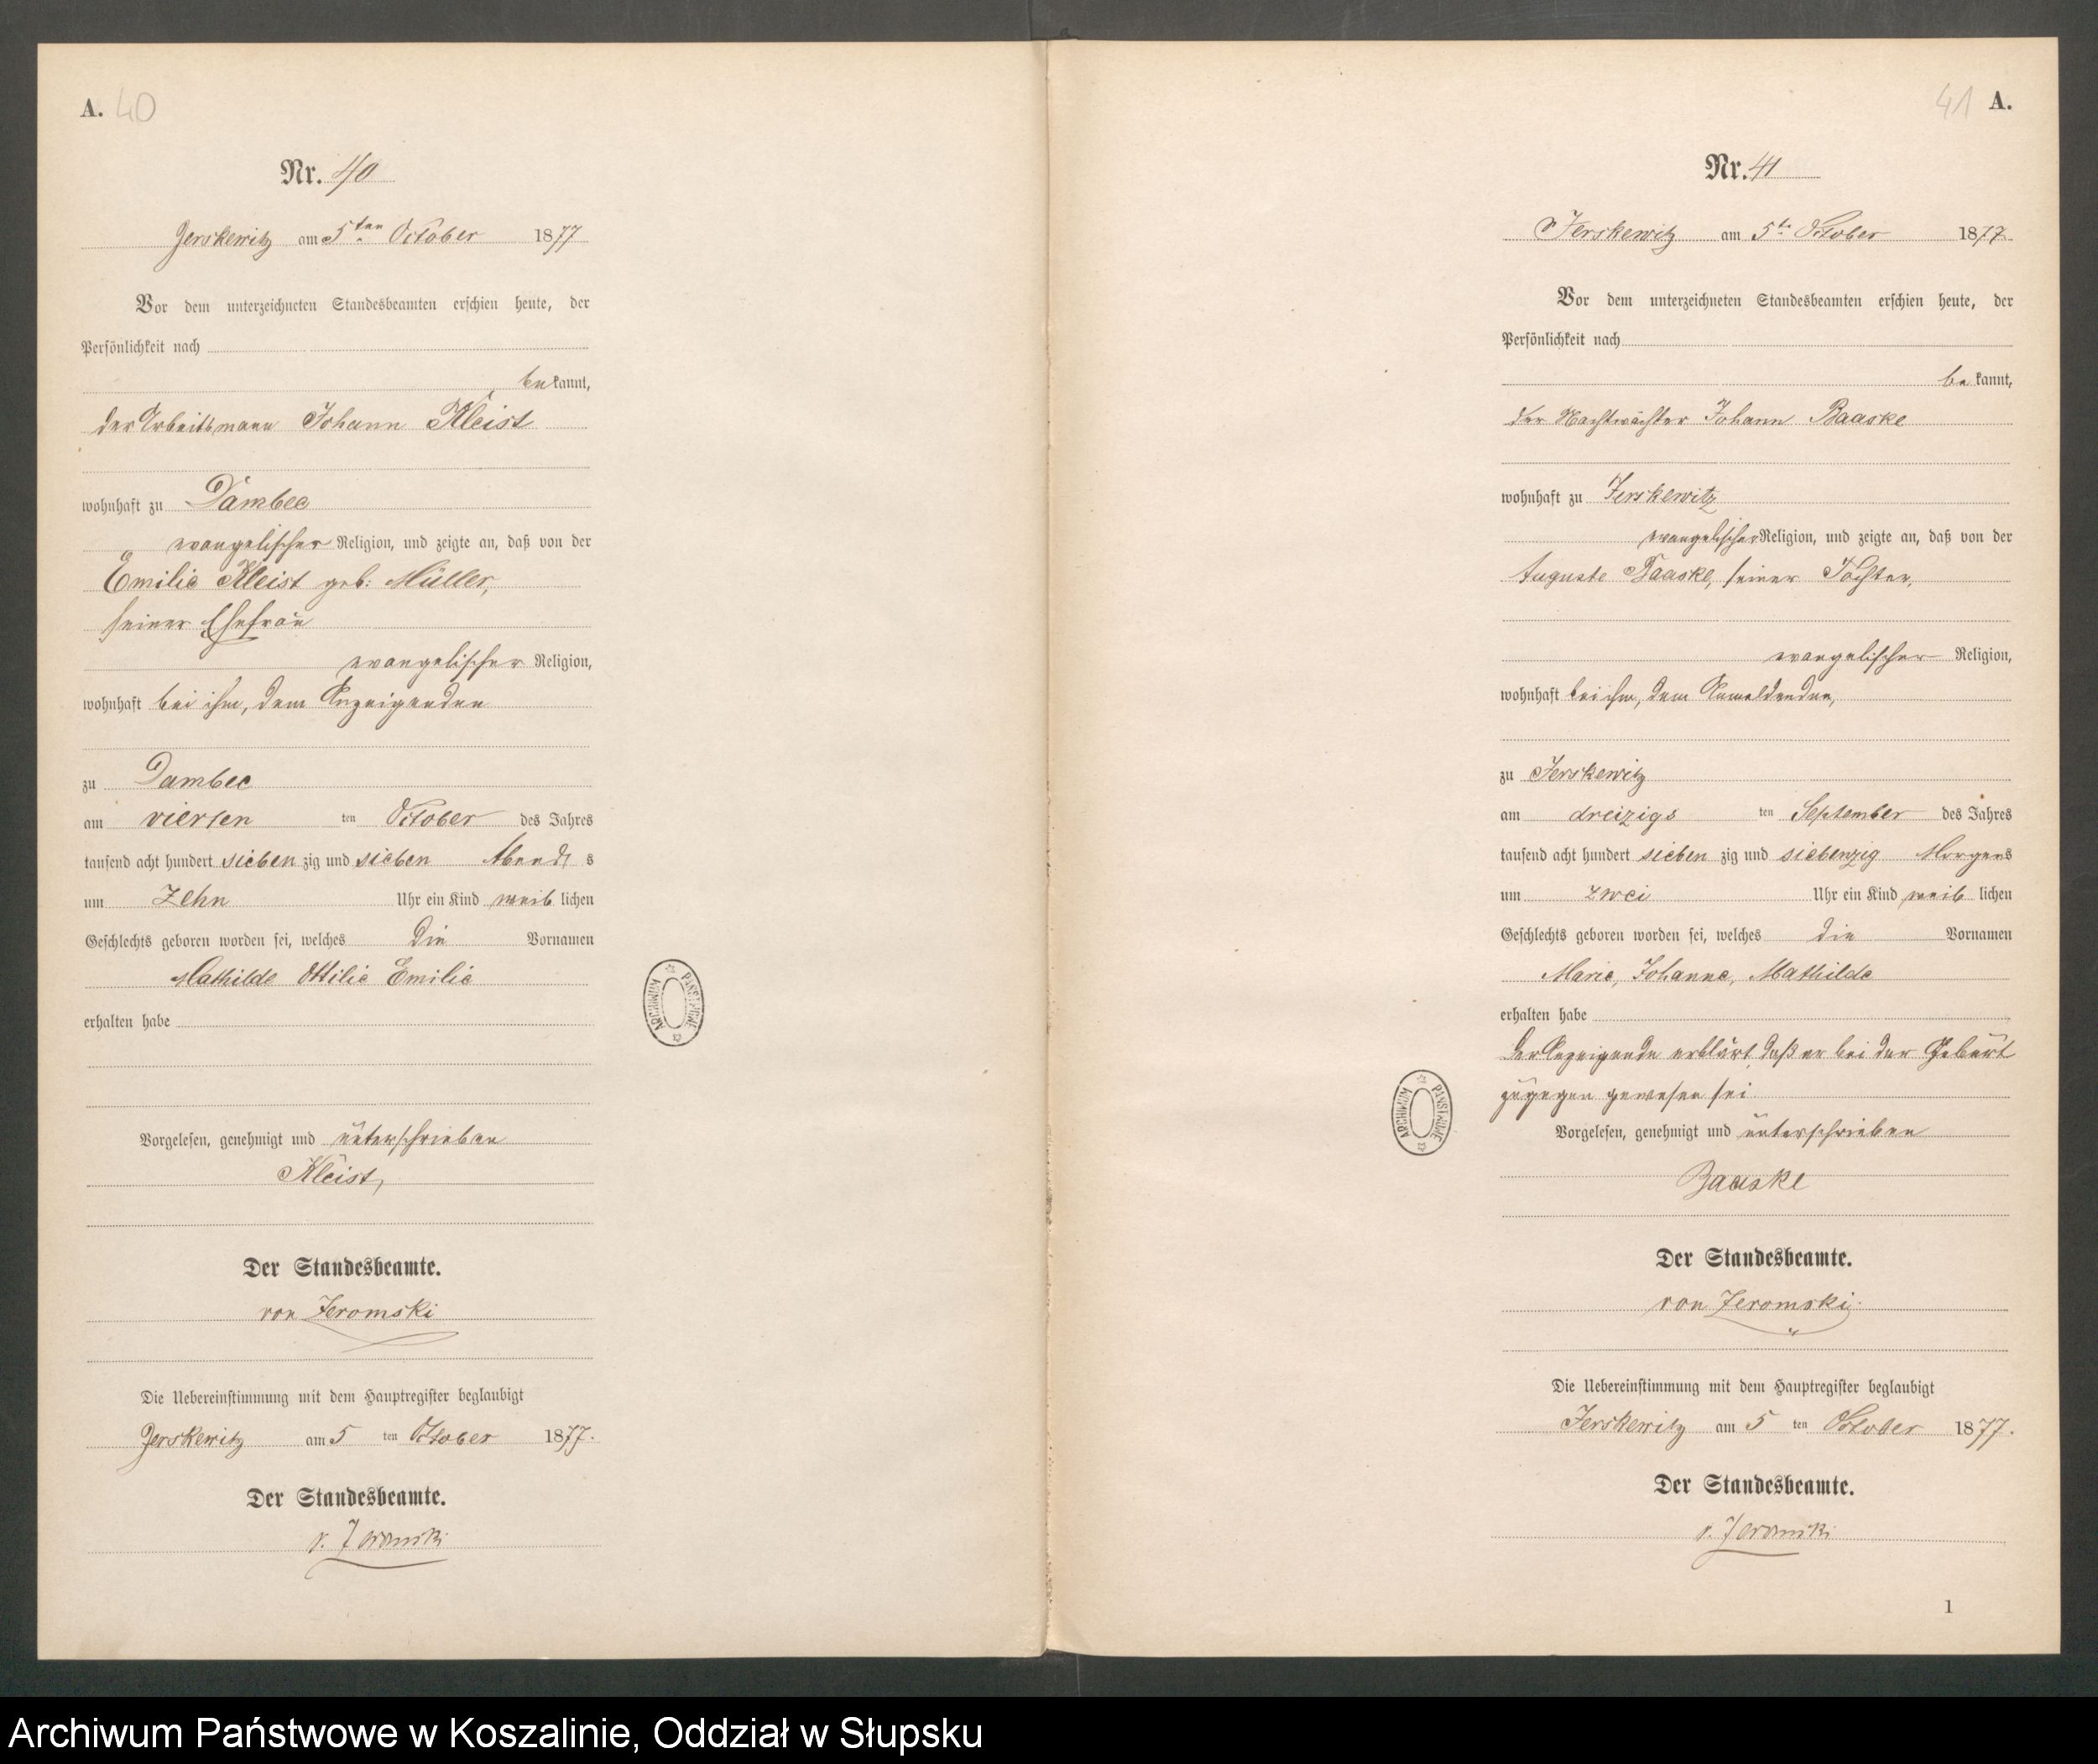 A. 40
Nr. 40
Jerskewitz am 5ten October 1877
Vor dem unterzeichneten Standesbeamten erschien heute, der
Persönlichkeit nach
bekannt,
der Arbeitsmann Johann Kleist
wohnhaft zu Dambee
evangelischer Religion, und zeigte an, daß von der
Emilie Kleist geb: Müller,
seiner Ehefrau
evangelischer Religion,
wohnhaft bei ihm, dem Anzeigenden
zu Dambee
am vierten ten October des Jahres
tausend acht hundert siebenzig und sieben Abends
um zehn Uhr ein Kind weiblichen
Geschlechts geboren worden sei, welches die Vornamen
Mathilde Ottilie Emilie
erhalten habe
Vorgelesen, genehmigt und unterschrieben
Kleist,
Der Standesbeamte.
von Jeromski
Die Uebereinstimmung mit dem Hauptregister beglaubigt
Jerskewitz am 5 ten October 1877.
Der Standesbeamte.
v. Jeromski
ARCHIWUM PAŃSTWOWE
41 A.
Nr. 41
Jerskewitz am 5t October 1877
Vor dem unterzeichneten Standesbeamten erschien heute, der
Persönlichkeit nach
bekannt,
der Nachtwächter Johann Baaske
wohnhaft zu Jerskewitz
evangelischer Religion, und zeigte an, daß von der
Auguste Baaske, seiner Tochter,
evangelischer Religion,
wohnhaft bei ihm, dem Anmeldenden,
zu Jerskewitz
am dreizigs ten September des Jahres
tausend acht hundert sieben zig und siebenzig Morgens
um zwei Uhr ein Kind weiblichen
Geschlechts geboren worden sei, welches die Vornamen
Marie, Johanne, Mathilde
erhalten habe
Der Anzeigende erklärt, daß er bei der Geburt
zugegen gewesen sei
Vorgelesen, genehmigt und unterschrieben
Baaske
Der Standesbeamte.
von Jeromski.
Die Uebereinstimmung mit dem Hauptregister beglaubigt
Jerskewitz am 5 ten October 1877.
Der Standesbeamte.
v. Jeromski
1
ARCHIWUM PAŃSTWOWE
Archiwum Państwowe w Koszalinie, Oddział w Słupsku